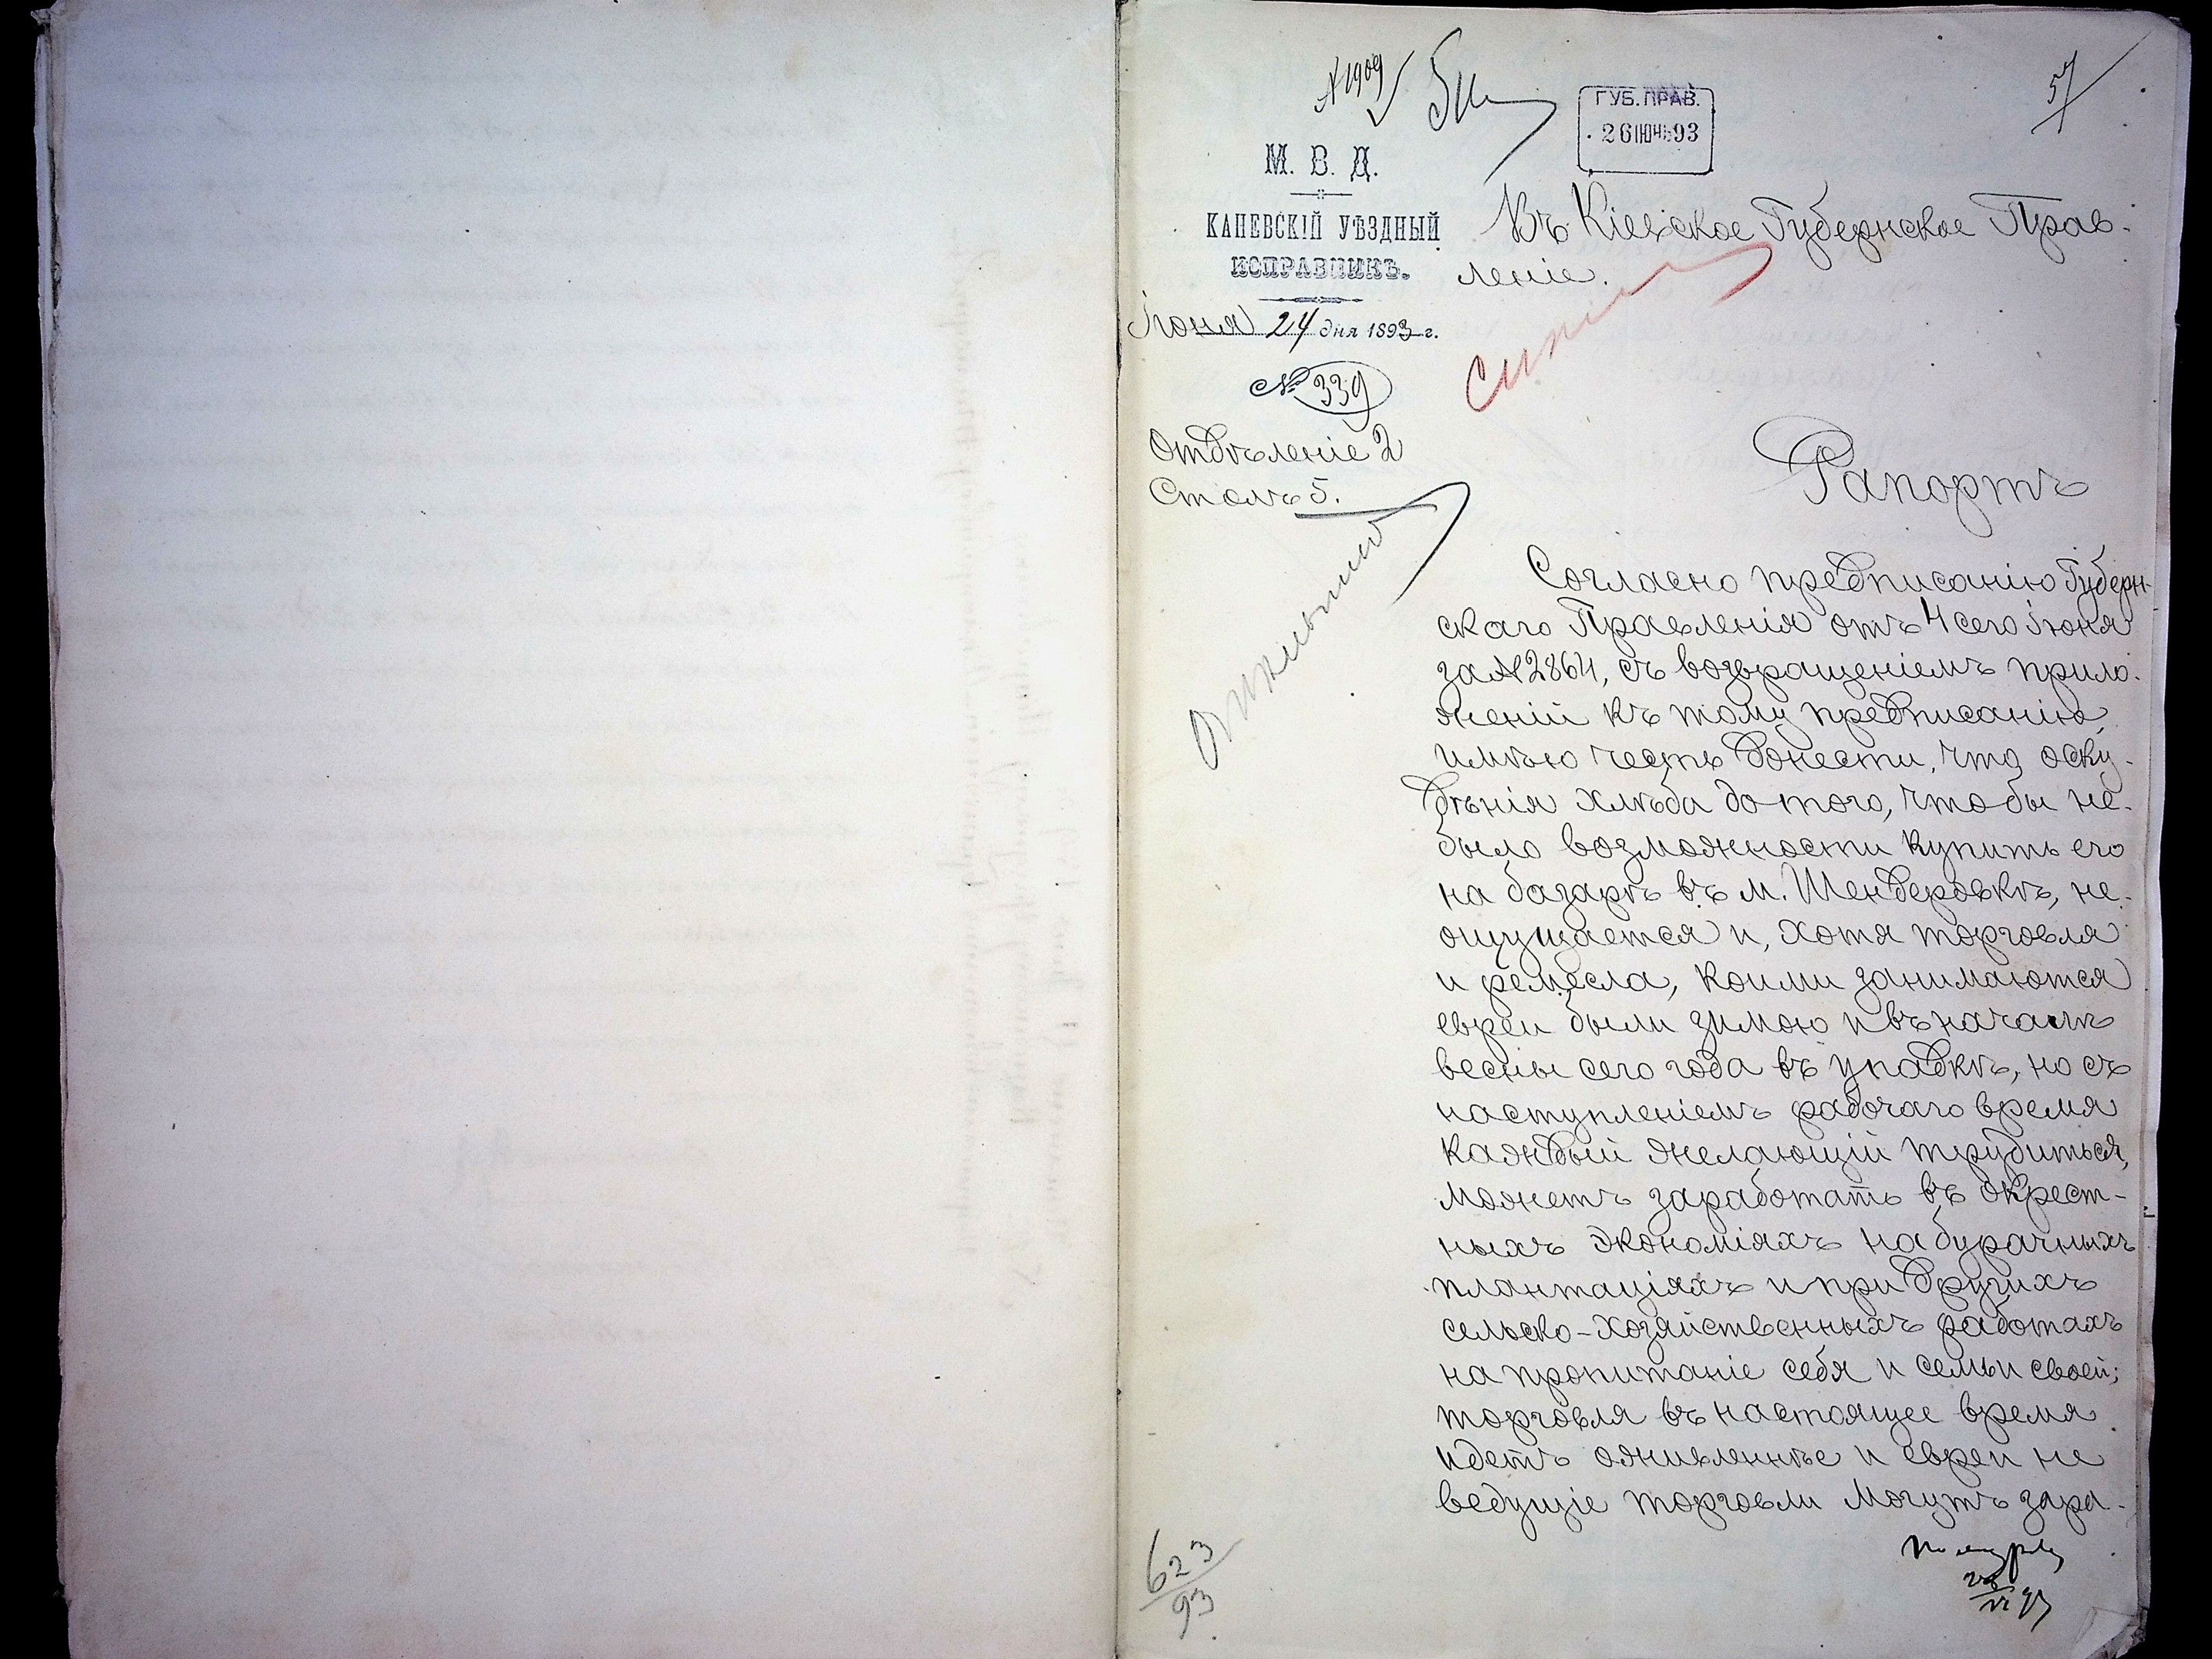 № 1909
57
ГУБ. ПРАВ.
26 ІЮН. 93
М. В. Д.
КАНЕВСКІЙ УѢЗДНЫЙ
ИСПРАВНИКЪ.
Іюня 24 дня 1893 г.
№ 339
Отдѣленіе 2
Столъ 5.
Въ Кіевское Губернское Прав-
леніе.
Рапортъ
Согласно предписанію Губерн-
скаго Правленія отъ 4 сего Іюня
за № 2864, съ возвращеніемъ прило-
женій къ тому предписанію,
имѣю честь донести, что оску-
дѣнія хлѣба до того, чтобы не-
было возможности купить его
на базарѣ въ м. Шендеровкѣ, не-
ощущается и, хотя торговля
и ремесла, коими занимаются
евреи были зимою и въ началѣ
весны сего года въ упадкѣ, но съ
наступленіемъ рабочаго время
каждый желающій трудиться,
можетъ заработать въ окрест-
ныхъ экономіяхъ на бурачныхъ
плантаціяхъ и при другихъ
сельско-хозяйственныхъ работахъ
на пропитаніе себя и семьи своей;
торговля въ настоящее время
идетъ оживленнѣе и евреи не
ведущіе торговли могутъ зара-
623
93